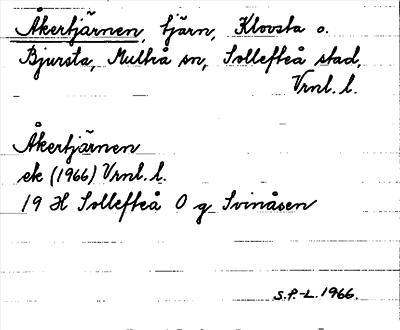 Åkertjärnen, tjärn, Klovsta o.
Bjursta, Multrå sn, Sollefteå stad,
Vrnl. l.
Åkertjärnen
ek (1966) Vrnl. l.
19 H Sollefteå O g Svinåsen
S.P-L. 1966.